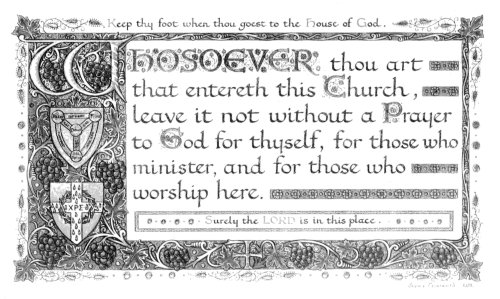 Keep thy foot when thou goest to the House of God.
WHOSOEVER thou art
that entereth this Church,
leave it not without a Prayer
to God for thyself, for those who
minister, and for those who
worship here.
Surely the LORD is in this place.